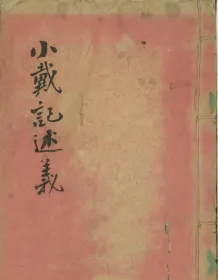 小戴記述義